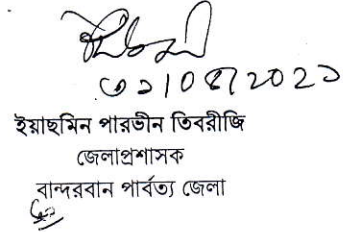 ৩১/০৫/২০২১
ইয়াছমিন পারভীন তিবরীজি
জেলাপ্রশাসক
বান্দরবান পার্বত্য জেলা